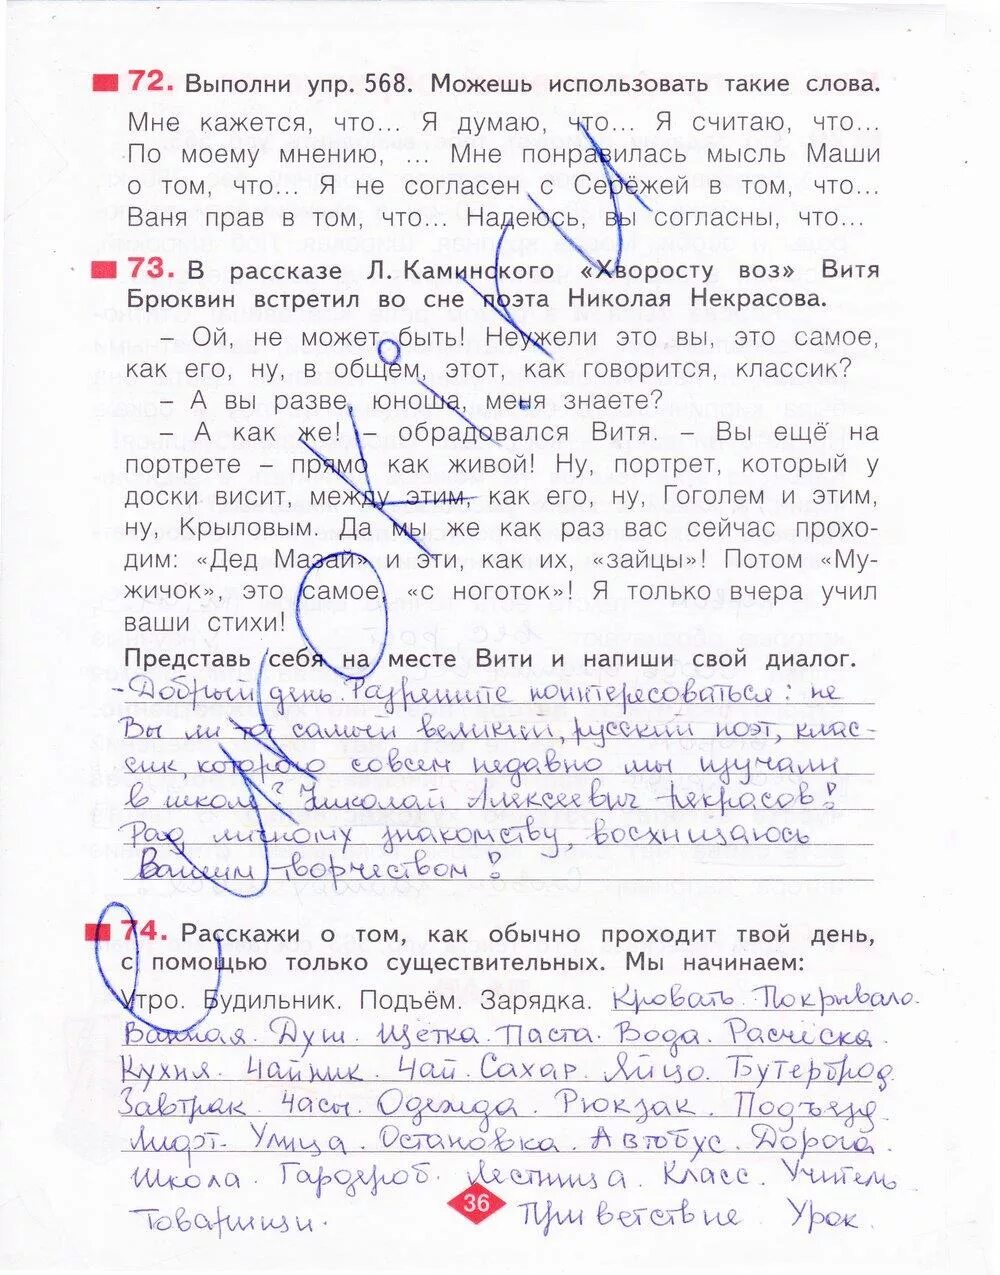 72. Выполни упр. 568. Можешь использовать такие слова.
Мне кажется, что... Я думаю, что... Я считаю, что...
По моему мнению, ... Мне понравилась мысль Маши
о том, что... Я не согласен с Серёжей в том, что...
Ваня прав в том, что... Надеюсь, вы согласны, что...
73. В рассказе Л. Каминского «Хворосту воз» Витя
Брюквин встретил во сне поэта Николая Некрасова.
– Ой, не может быть! Неужели это вы, это самое,
как его, ну, в общем, этот, как говорится, классик?
– А вы разве, юноша, меня знаете?
– А как же! – обрадовался Витя. – Вы ещё на
портрете – прямо как живой! Ну, портрет, который у
доски висит, между этим, как его, ну, Гоголем и этим,
ну, Крыловым. Да мы же как раз вас сейчас прохо-
дим: «Дед Мазай» и эти, как их, «зайцы»! Потом «Му-
жичок», это самое, «с ноготок»! Я только вчера учил
ваши стихи!
Представь себя на месте Вити и напиши свой диалог.
- Добрый день. Разрешите поинтересоваться: не
Вы ли самый великий, русский поэт, клас-
сик, которого совсем недавно мы изучали
в школе? Николай Алексеевич Некрасов!
Рад личному знакомству, восхищаюсь
Вашим творчеством!
74. Расскажи о том, как обычно проходит твой день,
с помощью только существительных. Мы начинаем:
Утро. Будильник. Подъём. Зарядка. Кровать. Покрывало.
Ванная. Душ. Щётка. Паста. Вода. Расчёска.
Кухня. Чайник. Чай. Сахар. Яйцо. Бутерброд.
Завтрак. Часы. Одежда. Рюкзак. Подъезд.
Лифт. Улица. Остановка. Автобус. Дорога.
Школа. Гардероб. Лестница. Класс. Учитель.
Товарищи. Приветствие. Урок.
36